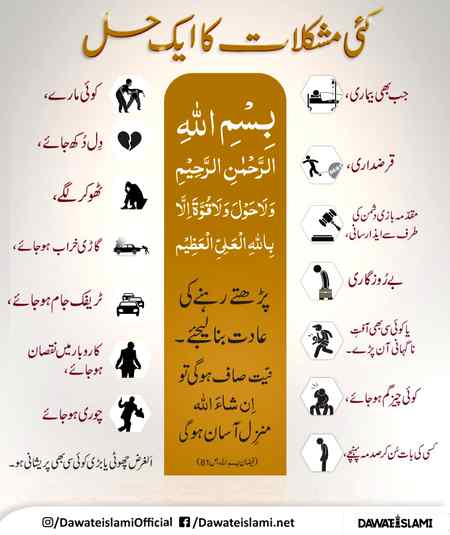 کئی مشکلات کا ایک حل
جب بھی بیماری،
قرضداری،
مقدمہ بازی دُشمن کی
طرف سے ایذا رسانی،
بے رُوزگاری
یا کوئی سی بھی آفتِ
ناگہانی آن پڑے۔
کوئی چیز گُم ہو جائے،
کسی کی بات سُن کر صدمہ پہنچے،
کوئی مارے،
دِل دُکھ جائے،
ٹھوکر لگے،
گاڑی خراب ہو جائے،
ٹریفک جام ہو جائے،
کاروبار میں نقصان
ہو جائے،
چوری ہو جائے
الغرض چھوٹی یا بڑی کوئی سی بھی پریشانی ہو۔
بِسْمِ اللهِ
الرَّحْمٰنِ الرَّحِيْمِ
وَلَا حَوْلَ وَلَا قُوَّةَ اِلَّا
بِاللهِ الْعَلِيِّ الْعَظِيْمِ
پڑھتے رہنے کی
عادت بنا لیجئے۔
نیّت صاف ہو گی تو
اِن شاءَ الله
منزل آسان ہو گی
@/DawateislamiOfficial /Dawateislami.net
DAWATEISLAMI